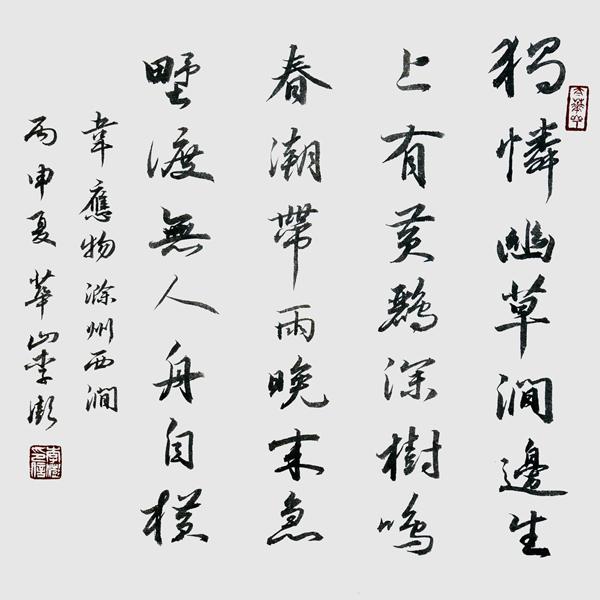 獨憐幽草澗邊生
上有黃鸝深樹鳴
春潮帶雨晚來急
野渡無人舟自橫
韋應物滁州西澗
丙申夏華山李彪